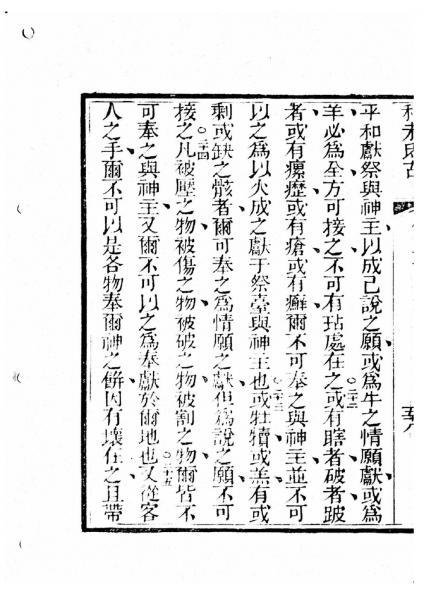 平和獻祭與神主以成己說之願或爲牛之情願獻或爲
羊必爲全方可接之不可有玷處在之○二十二或有瞎者破者跛
者或有瘰癧或有瘡或有癬爾不可奉之與神主並不可
以之爲以火成之獻于祭臺與神主也○二十三或牡犢或羔有或
剩或缺之骸者爾可奉之爲情願之獻但爲說之願不可
接之○二十四凡被壓之物被傷之物被破之物被割之物爾皆不
可奉之與神主又爾不可以之爲奉獻於爾地也○二十五又從客
人之手爾不可以是各物奉爾神之餅因有壞在之且帶